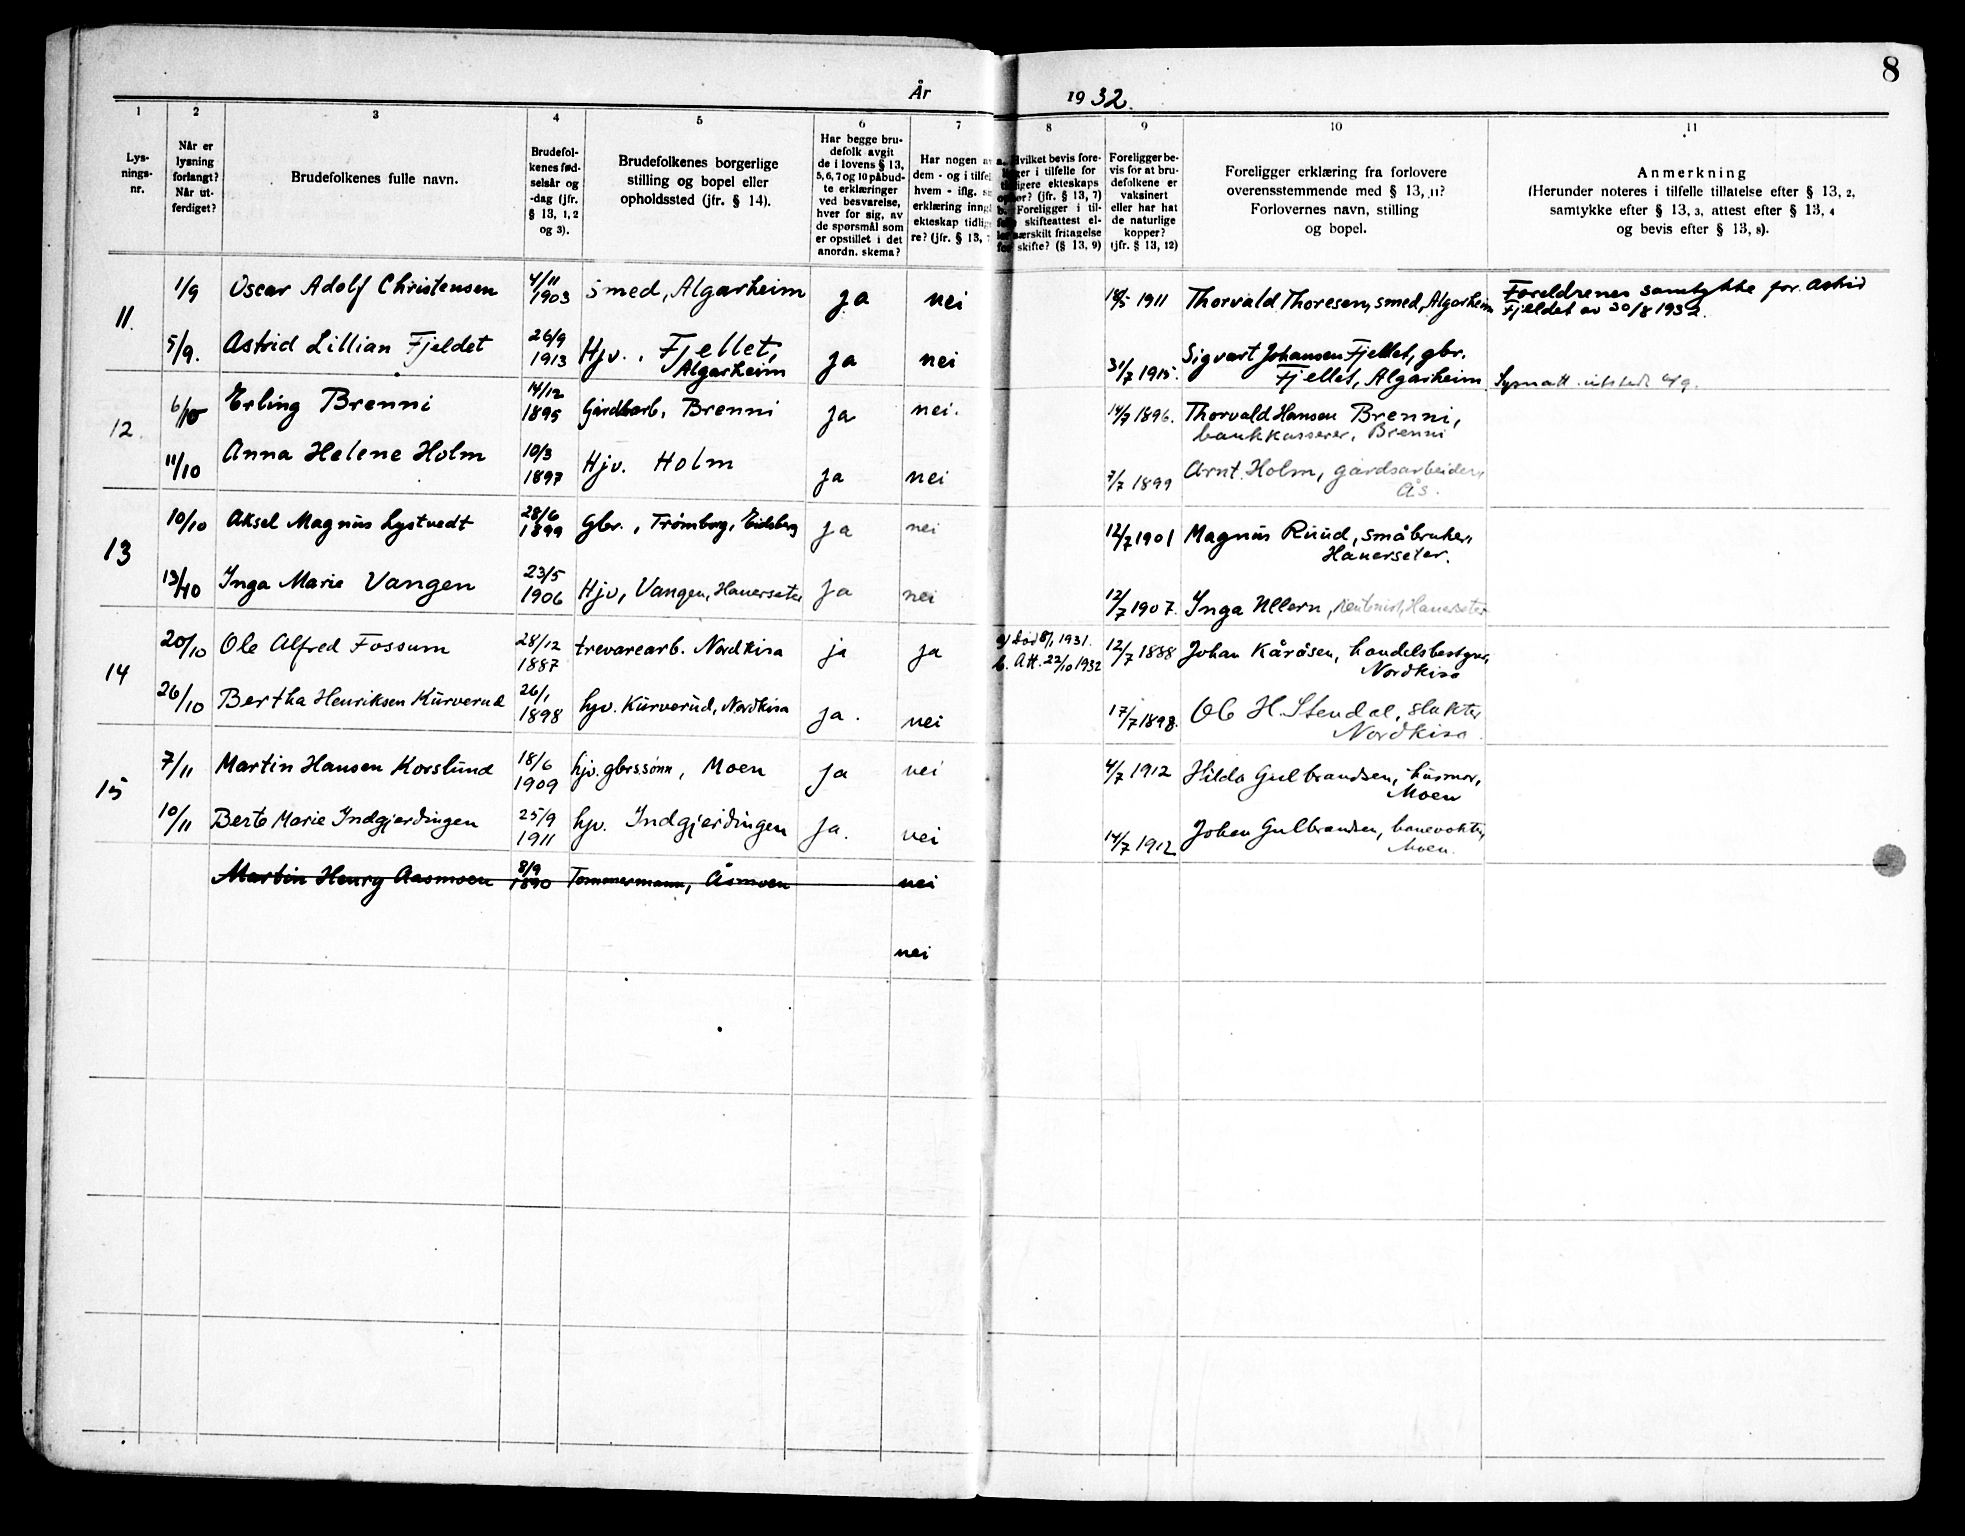 8
År 1932.
1
2
3
4
5
6
7
8
9
10
11
Lys-
nings-
nr.
Når er
lysning
forlangt?
Når ut-
ferdiget?
Brudefolkenes fulle navn.
Brudefol-
kenes fød-
selsår og
-dag (jfr.
§ 13, 1, 2
og 3).
Brudefolkenes borgerlige
stilling og bopel eller
opholdssted (jfr. § 14).
Har begge bru-
defolk avgit
de i lovens § 13,
5, 6, 7 og 10 påbud-
te erklæringer
ved besvarelse,
hver for sig, av
de spørsmål som
er opstillet i det
anordn. skema?
Har nogen av
dem - og i tilfel
hvem - iflg.
erklæring inng
ekteskap tidlig
re? (jfr. § 13,
Hvilket bevis fore-
ligger i tilfelle for
tidligere ekteskaps
ophør? (jfr. § 13, 7)
b. Foreligger i til-
felle skifteattest el-
ler særskilt fritagelse
for skifte? (§ 13, 9)
Foreligger be-
vis for at bru-
defolkene er
vaksinert
eller har hat
de naturlige
kopper?
(jfr. § 13, 12)
Foreligger erklæring fra forlovere
overensstemmende med § 13, 11?
Forlovernes navn, stilling
og bopel.
Anmerkning
(Herunder noteres i tilfelle tillatelse efter § 13, 2,
samtykke efter § 13, 3, attest efter § 13, 4
og bevis efter § 13, 8).
11. 1/9 Oscar Adolf Christensen 4/11 1903 smed, Algarheim ja nei 1911 Thorvald Thoresen, smed, Algarheim Foreldrenes samtykke for Astrid
Fjeldet av 30/8 1932.
5/9. Astrid Lillian Fjeldet 26/9 1913 Hjv., Fjellet, ja nei 31/7 1915. Sigvart Johansen Fjellet, gbr.
Algarheim Fjellet, Algarheim
12. 6/10 Erling Brenni 14/12 1895 Gårdbarb. Brenni ja nei. 14/7 1896. Thorvald Hansen Brenni,
bankkasserer, Brenni
11/10 Anna Helene Holm 10/3 1897 Hjv. Holm ja nei 7/7 1899 Arnt Holm, gårdsarbeider,
Ås.
13 10/10 Aksel Magnus Lystvedt 28/6 1899 Gbr., Trømborg, Eidsberg ja nei 12/7 1901 Magnus Ruud, småbruker,
Hauerseter.
13/10 Inga Marie Vangen 23/5 1906 Hjv, Vangen, Hauerseter ja nei 12/7 1907. Inga Ullern, Hauerseter
14 20/10 Ole Alfred Fossum 28/12 1887 trevarearb. Nordkisa ja ja a) død 8/1 1931. 12/7 1888 Johan Kåråsen, handelsbestyrer,
b. Att. 22/10 1932 Nordkisa
26/10 Bertha Henriksen Kurverud 26/1 1898 hjv. Kurverud, Nordkisa ja. nei 17/7 1898. Ole H. Stendal, slakter
Nordkisa.
15 7/11 Martin Hansen Korslund 18/6 1909 hjv. gbrs.sønn, Moen ja nei 4/7 1912 Hilda Gulbrandsen, husmor,
Moen
10/11 Berte Marie Indgjerdingen 25/9 1911 hjv. Indgjerdingen ja. nei 14/7 1912 Johan Gulbrandsen, banevokter,
Moen.
Martin Henry Aasmoen 8/9 1890 Tømmermann, Åsmoen nei
nei